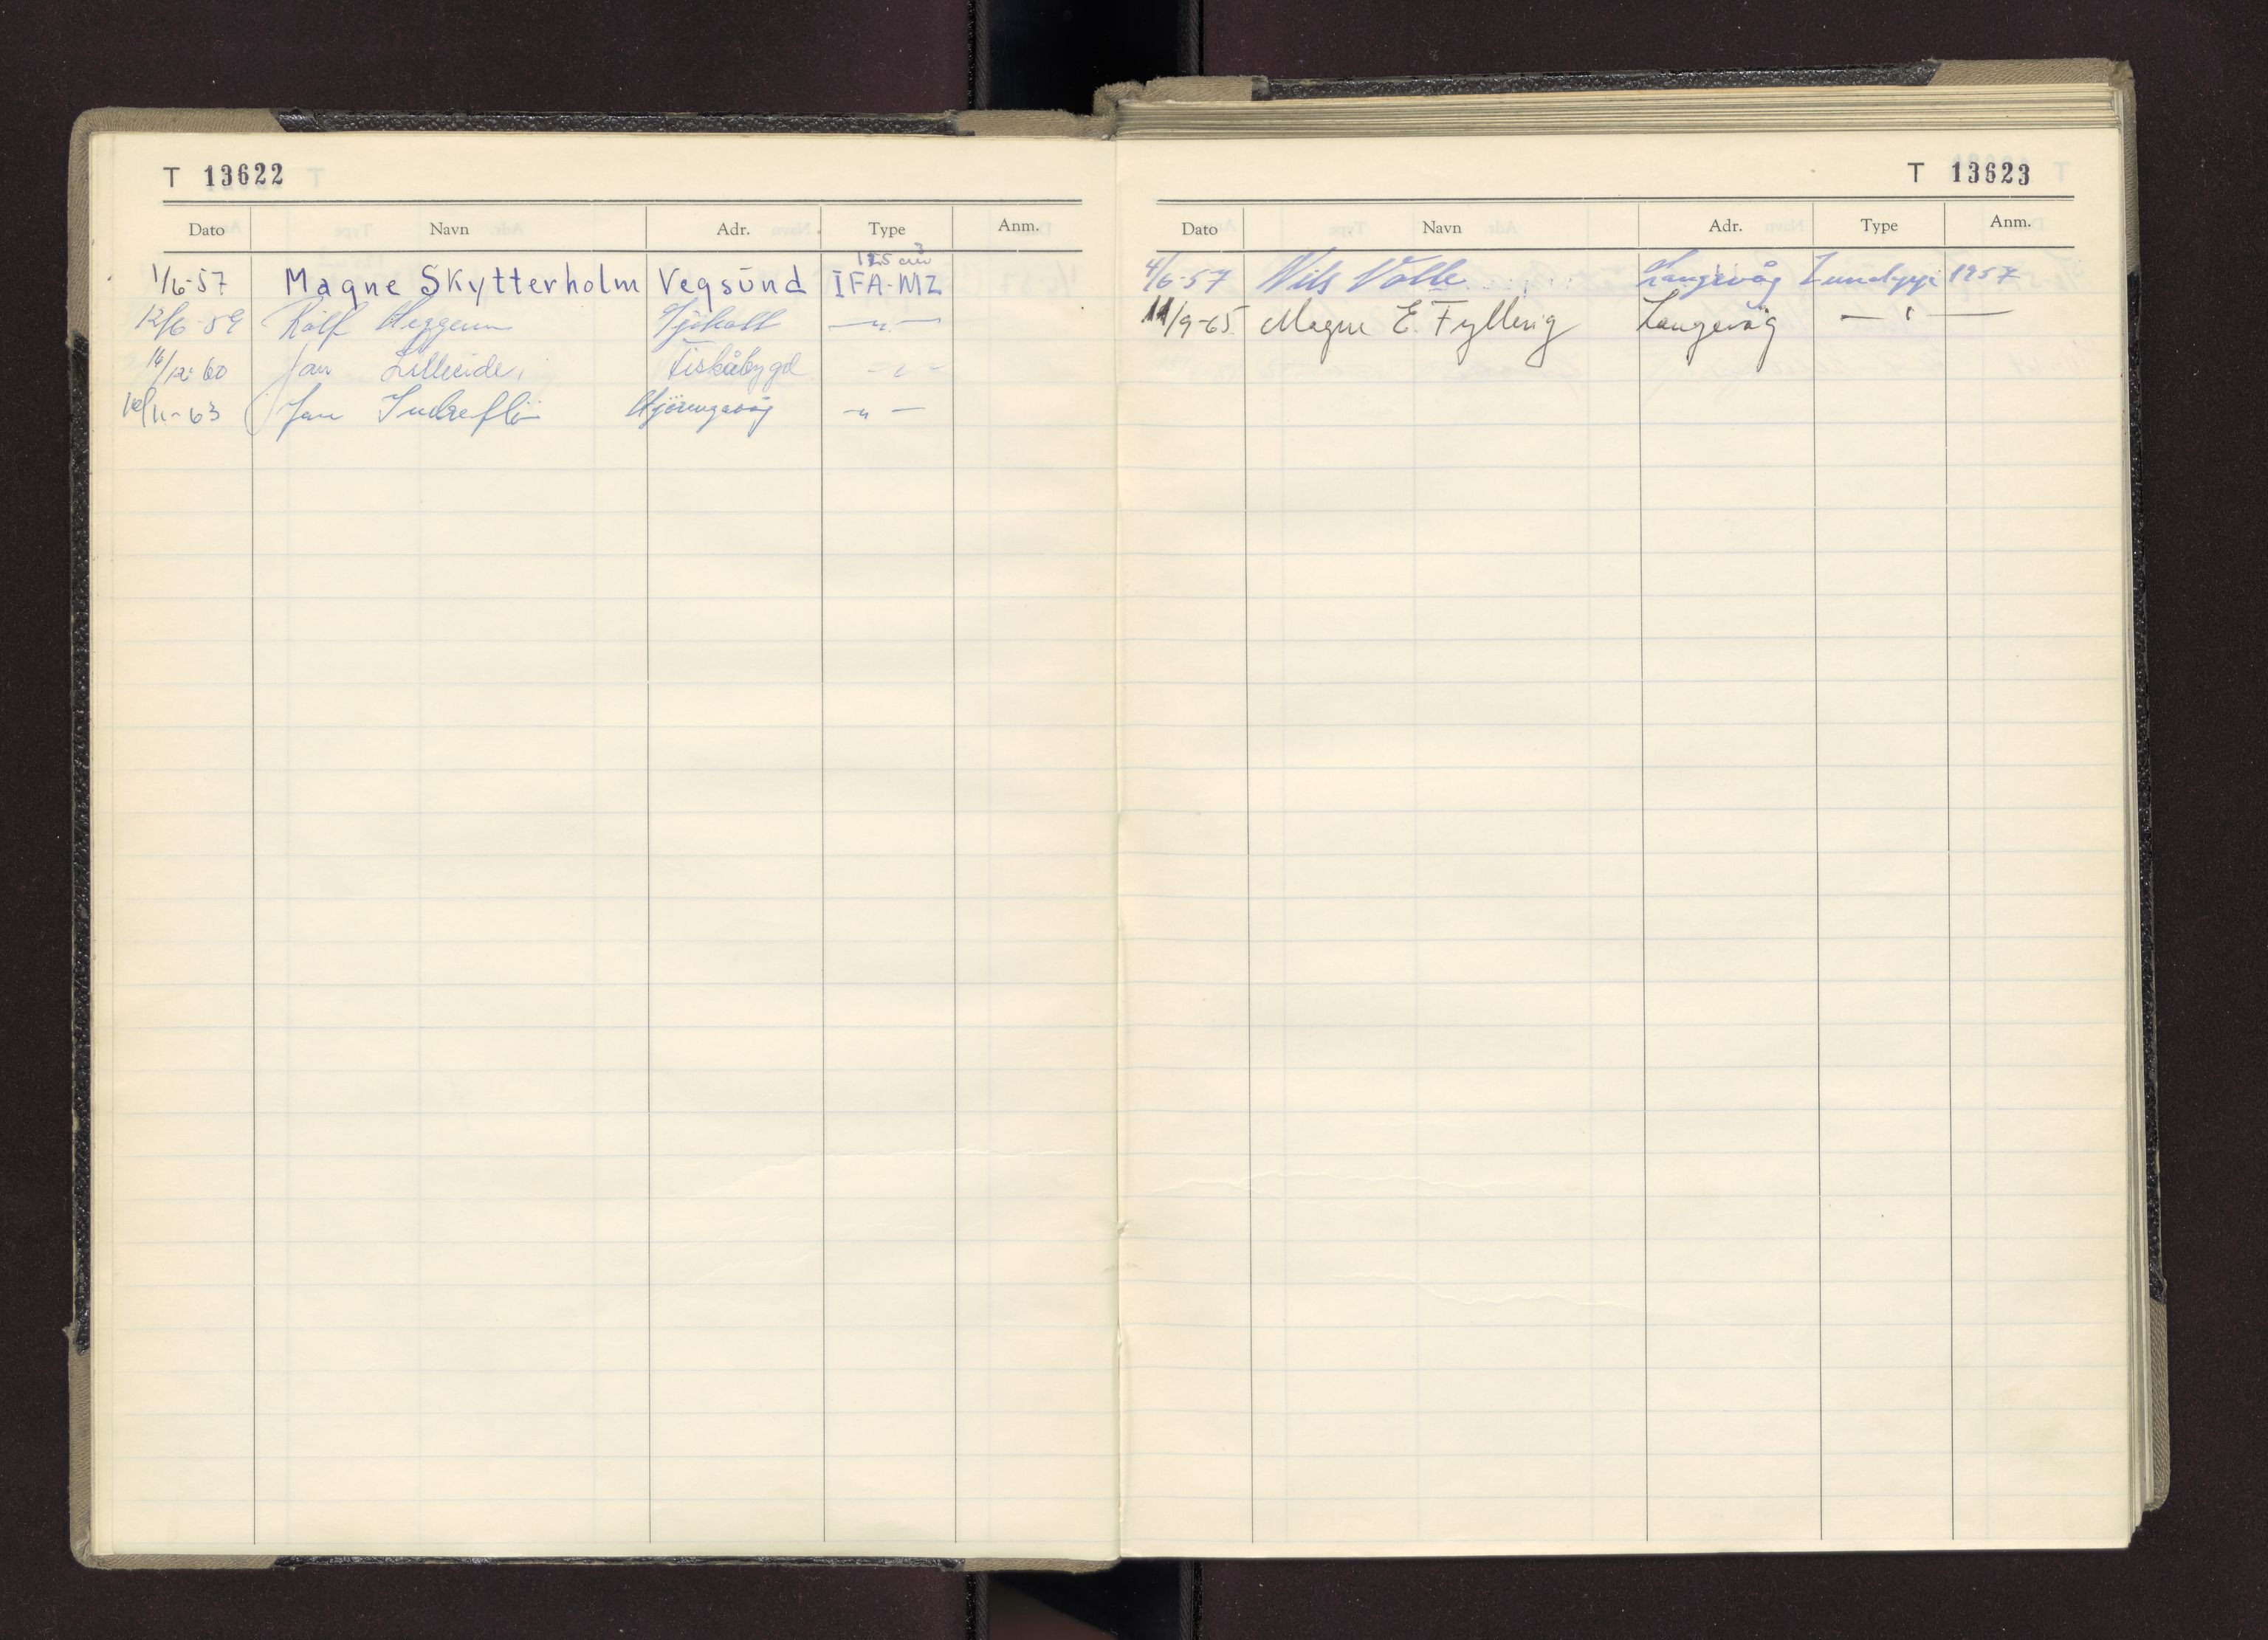 T 13622
Dato Navn Adr. Type Anm.
125 cm³
1/6-57 Magne Skytterholm Vegsund IFA-MZ
12/6-59 Rolf Heggem Sjøholt — " —
14/12-60 Jan Lilleeide Fiskåbygd - " -
10/11-63 Jan Indreflø Hjørungavåg - " -
T 13623
Dato Navn Adr. Type Anm.
4/6-57 Nils Valle Langevåg 1957
11/9-65 Magne E. Fylling Langevåg — " —